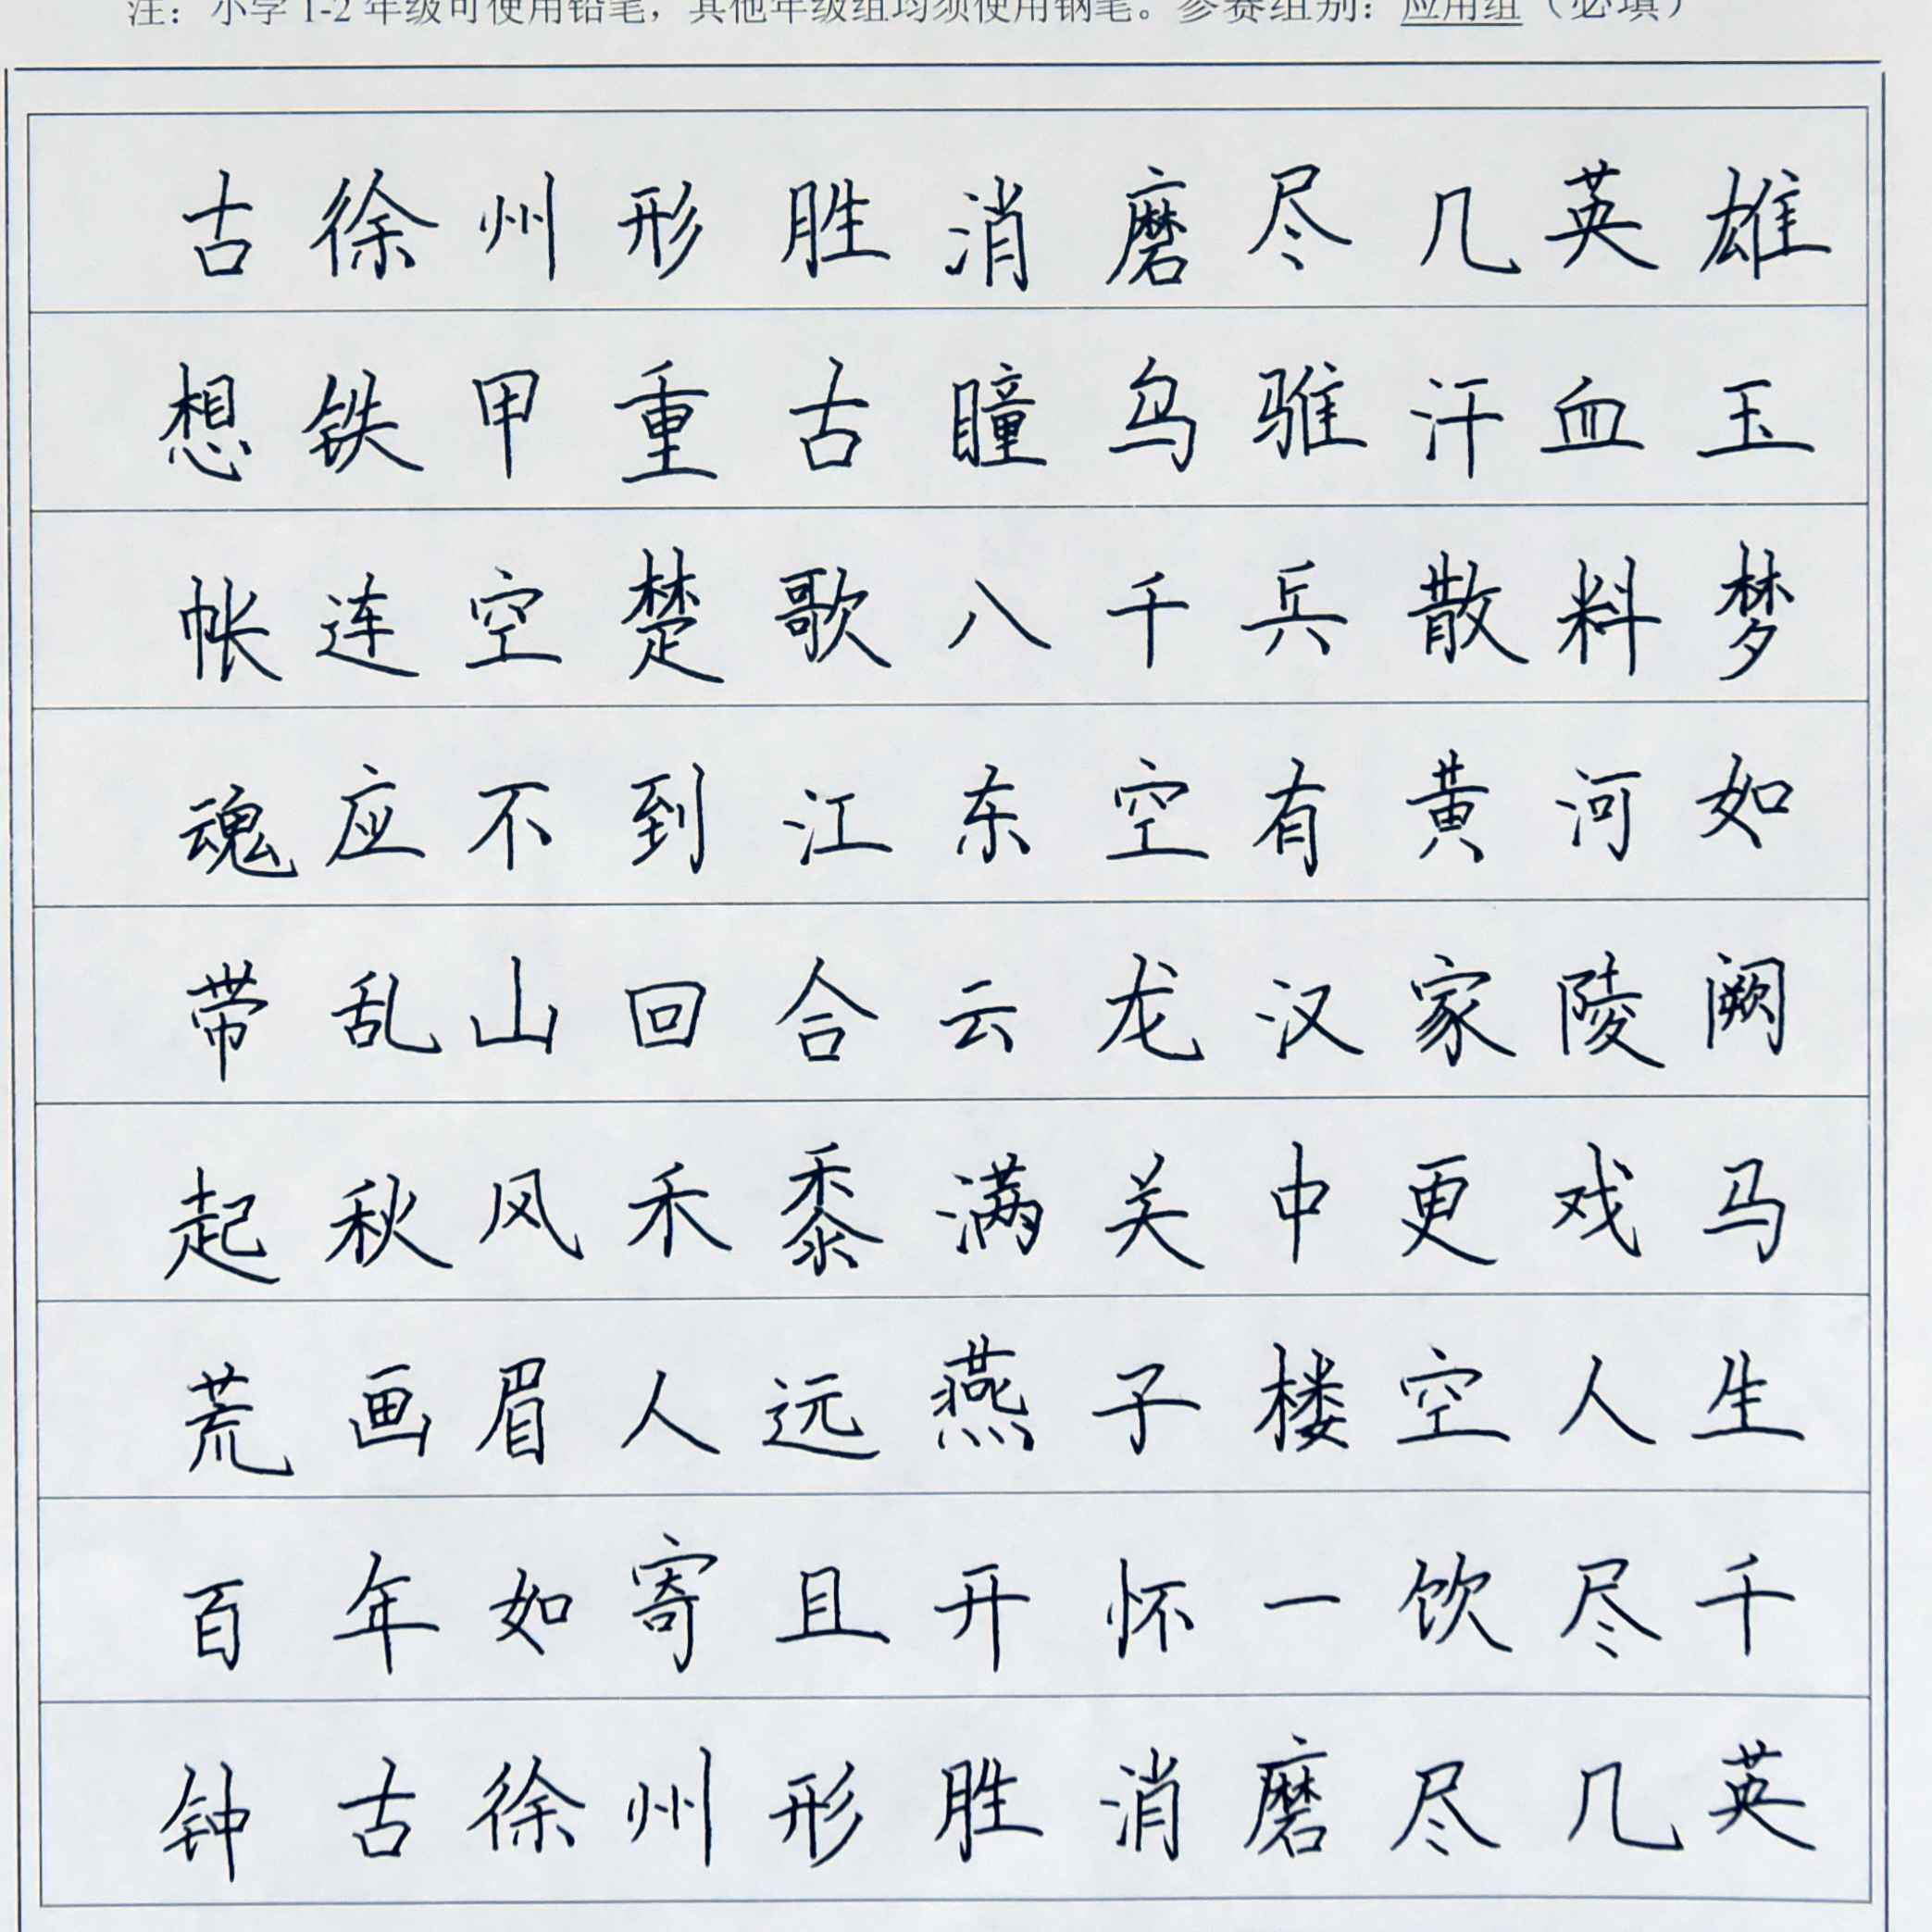 注：小学1-2年级可使用铅笔，其他年级组均须使用钢笔。参赛组别：应用组（必填）
古徐州形胜消磨尽几英雄
想铁甲重古瞳乌骓汗血玉
帐连空楚歌八千兵散料梦
魂应不到江东空有黄河如
带乱山回合云龙汉家陵阙
起秋风禾黍满关中更戏马
荒画眉人远燕子楼空人生
百年如寄且开怀一饮尽千
钟古徐州形胜消磨尽几英